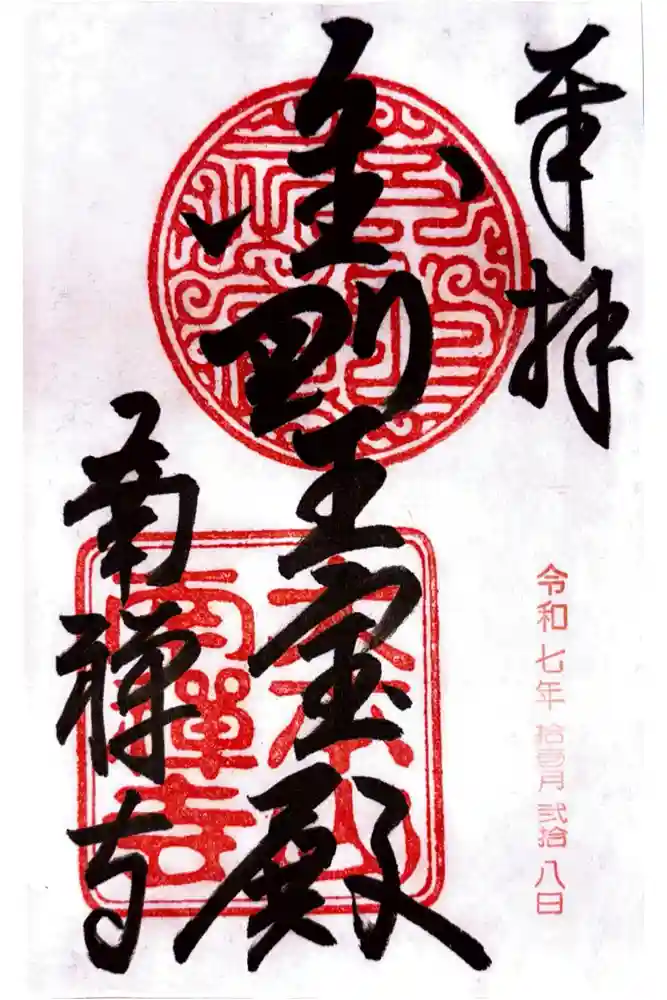 奉拝
令和七年拾壱月弐拾八日
金剛王宝殿
南禅寺
大本山
南禪寺